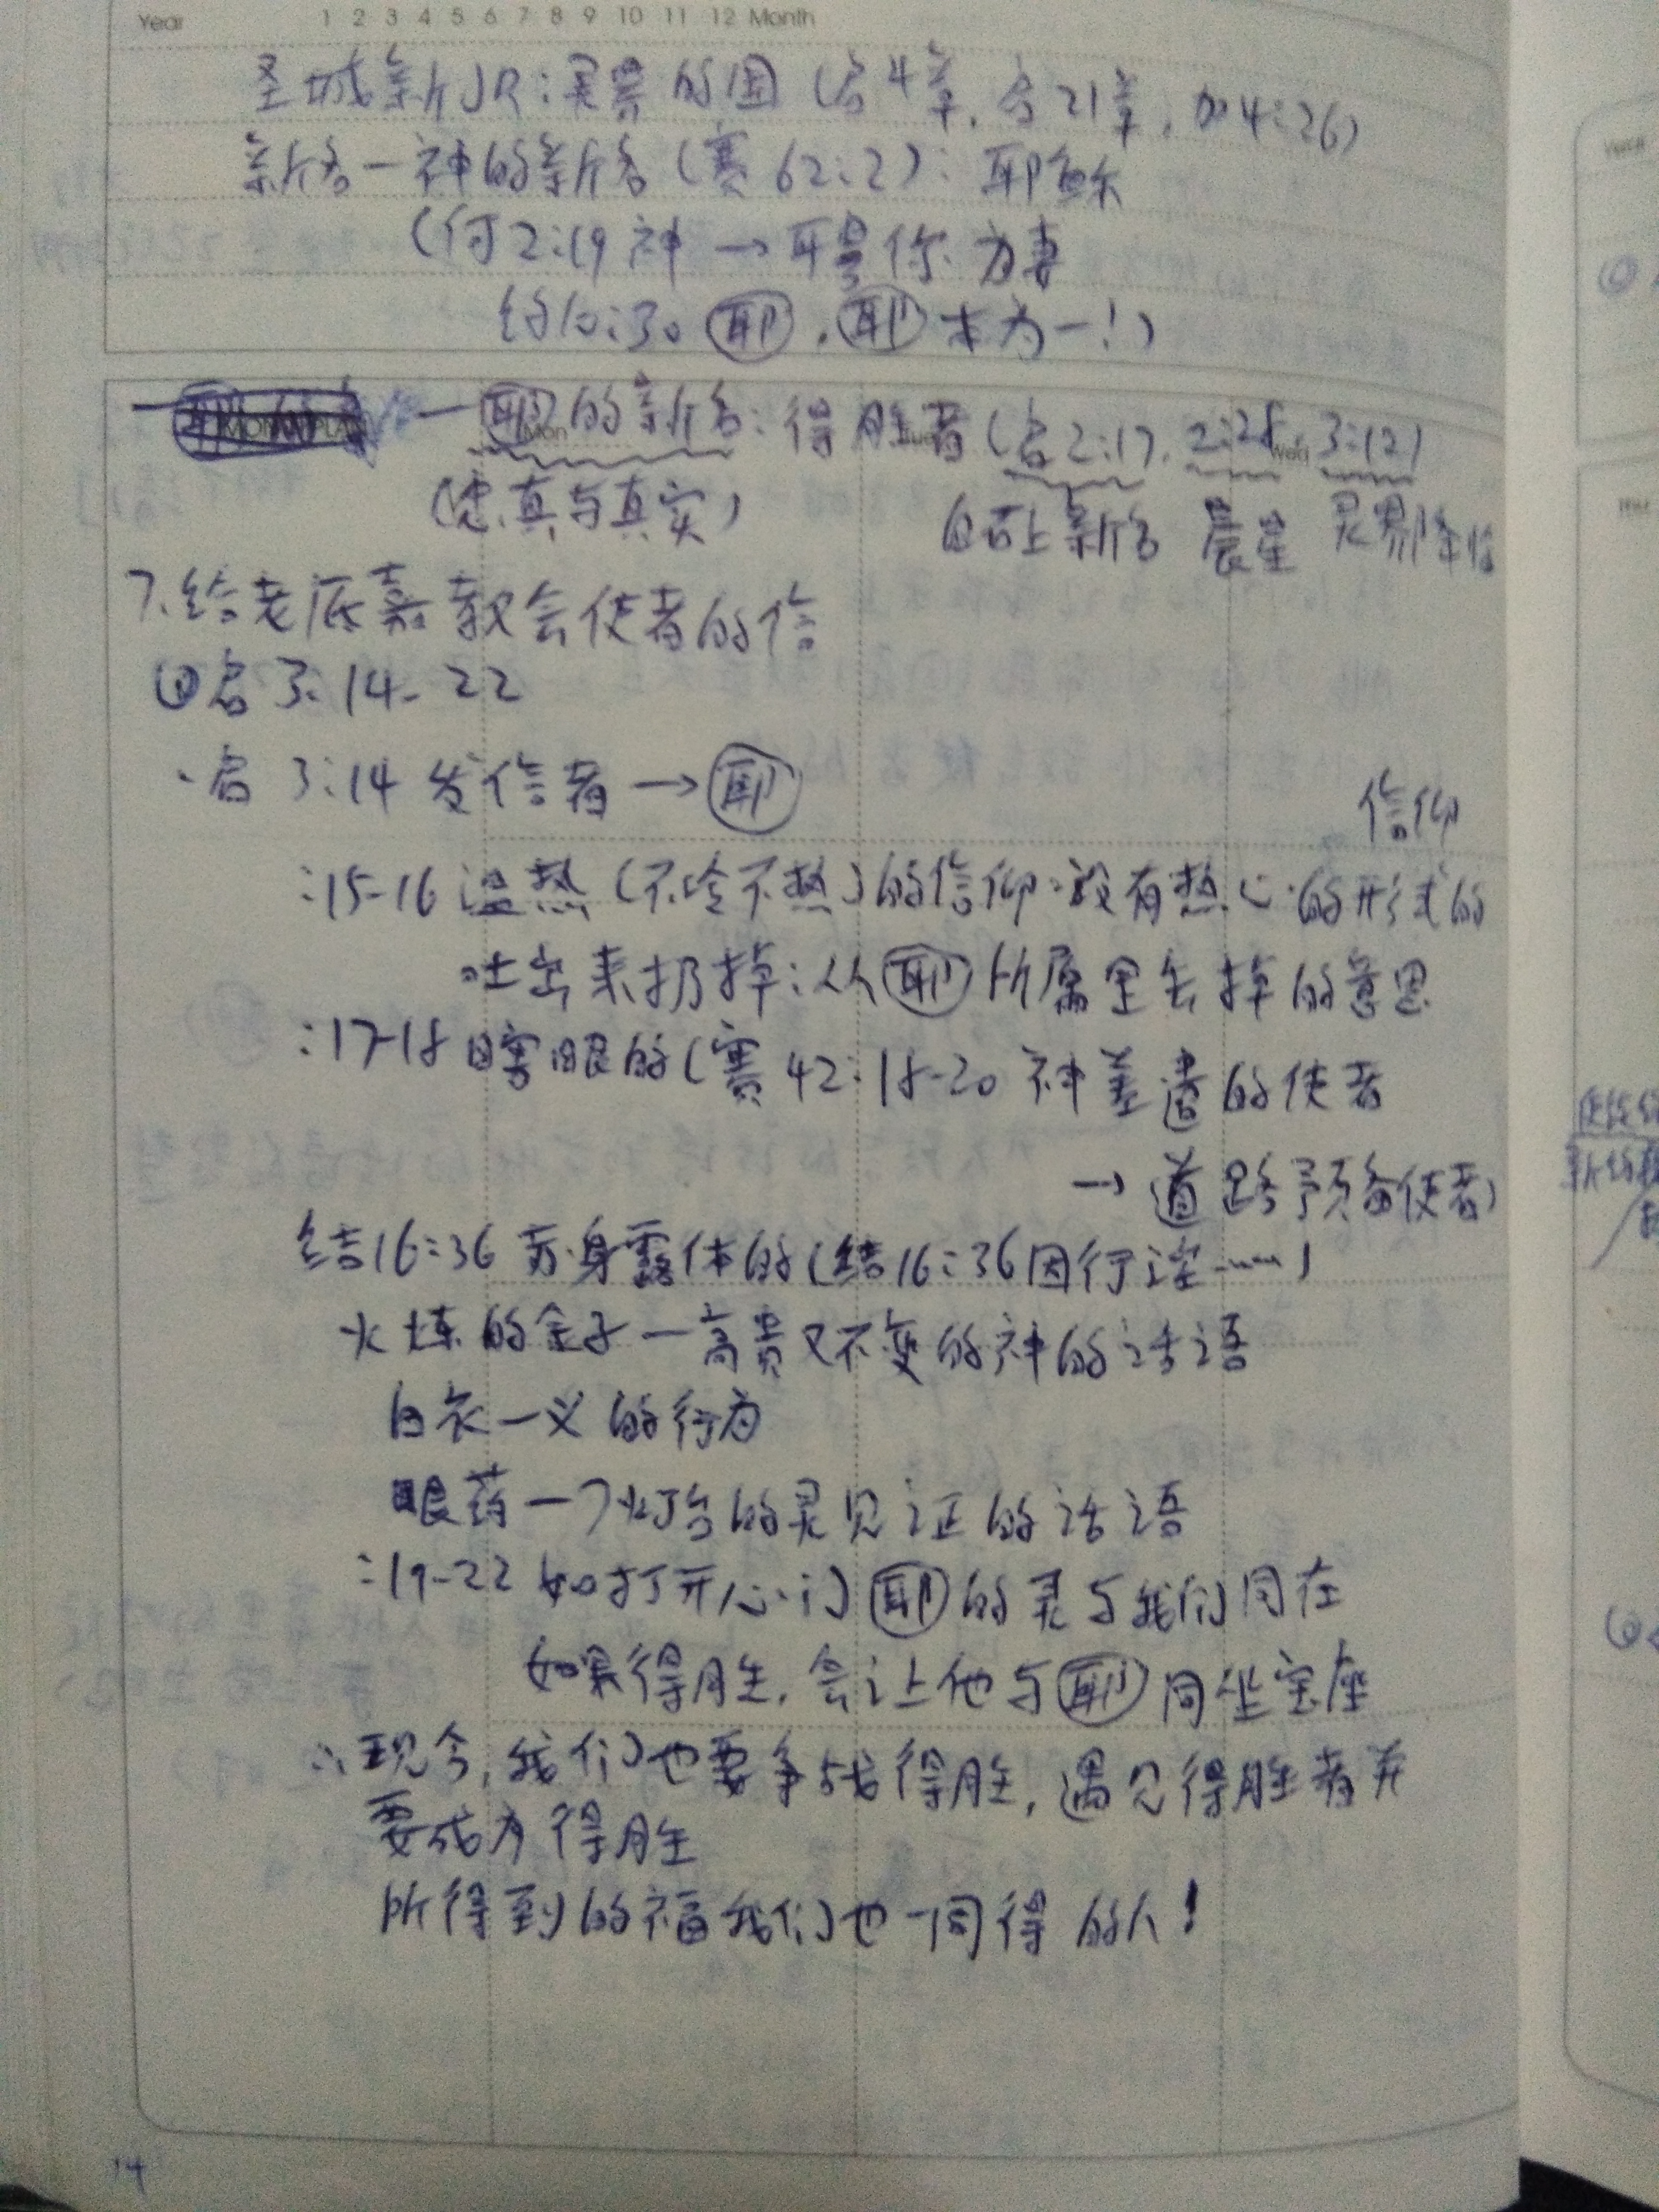 Year 1 2 3 4 5 6 7 8 9 10 11 12 Month
圣城新JR:灵界的国(启4章,启21章,加4:26)
新名—神的新名(赛62:2):耶稣
(何2:19神→聘你为妻
约10:30 耶,耶本为一!)
—耶的新名:得胜者(启2:17,2:28,3:12)
(忠真与真实) 白石上新名 晨星 灵界降临
7.给老底嘉教会使者的信
①启3:14-22
·启3:14发信者→耶
信仰
:15-16温热(不冷不热)的信仰:没有热心的形式的
吐出来扔掉:从耶所属里去掉的意思
:17-18瞎眼的(赛42:18-20神差遣的使者
→道路预备使者)
结16:36赤身露体的(结16:36因行淫……)
火炼的金子—高贵又不变的神的话语
白衣—义的行为
眼药—7灯台的灵见证的话语
:19-22如打开心门耶的灵与我们同在
如果得胜,会让他与耶同坐宝座
∴现今,我们也要争战得胜,遇见得胜者并
要成为得胜
所得到的福我们也一同得的人!
14